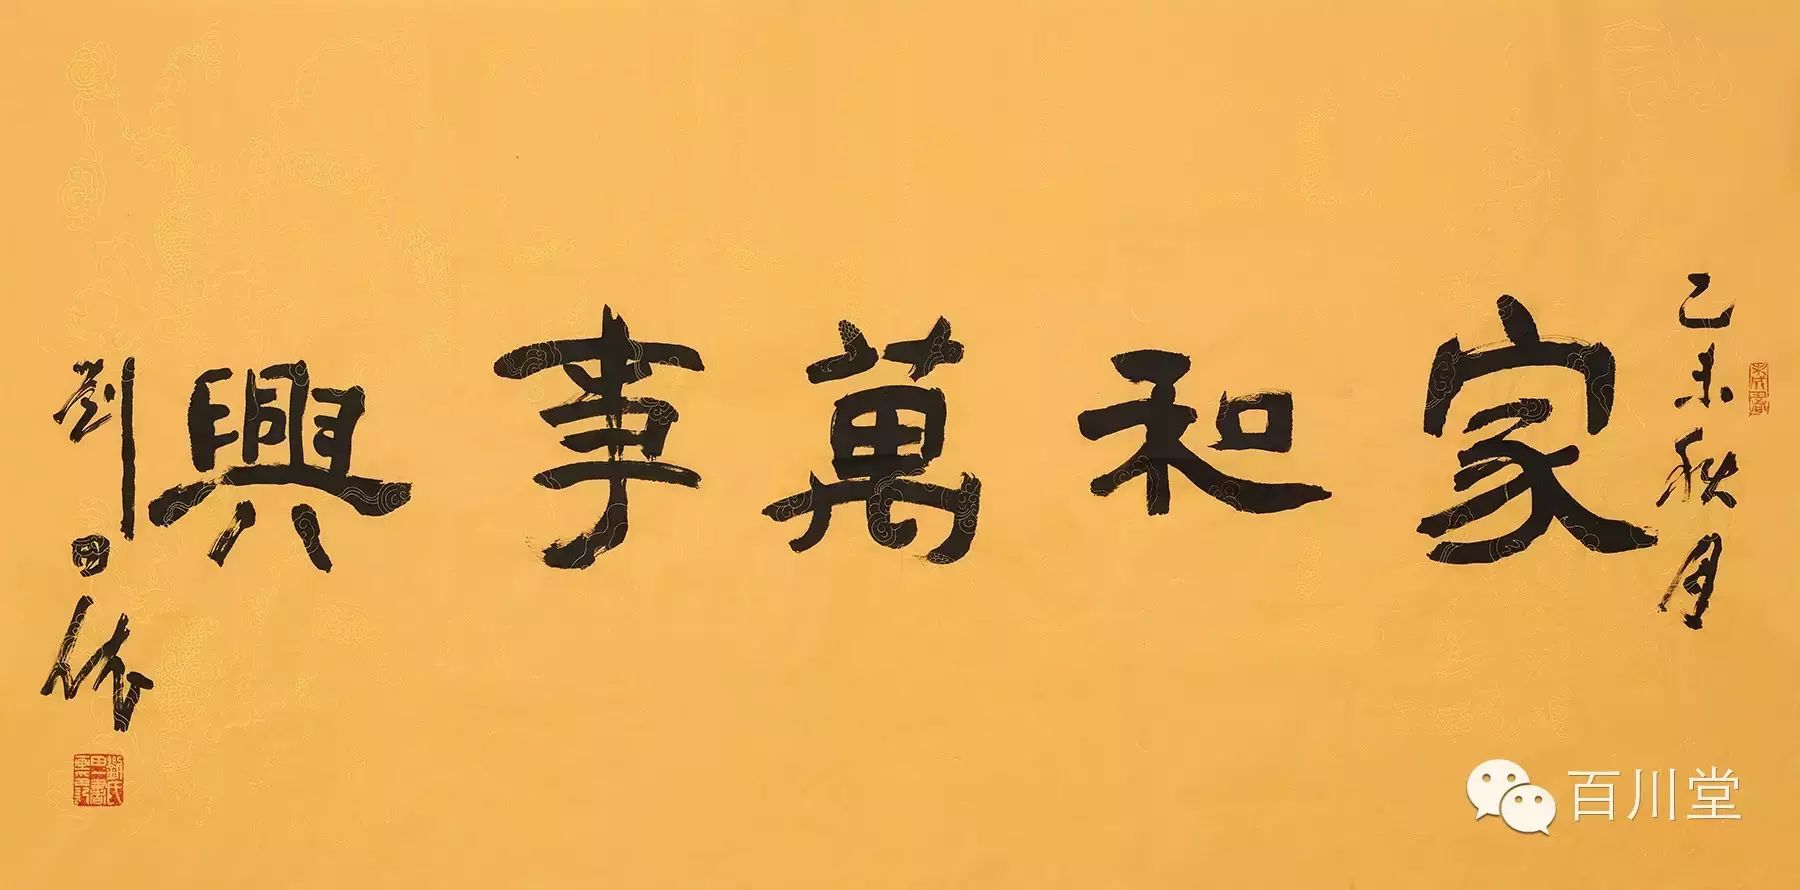 乙未秋月
家和萬事興
劉
百川堂